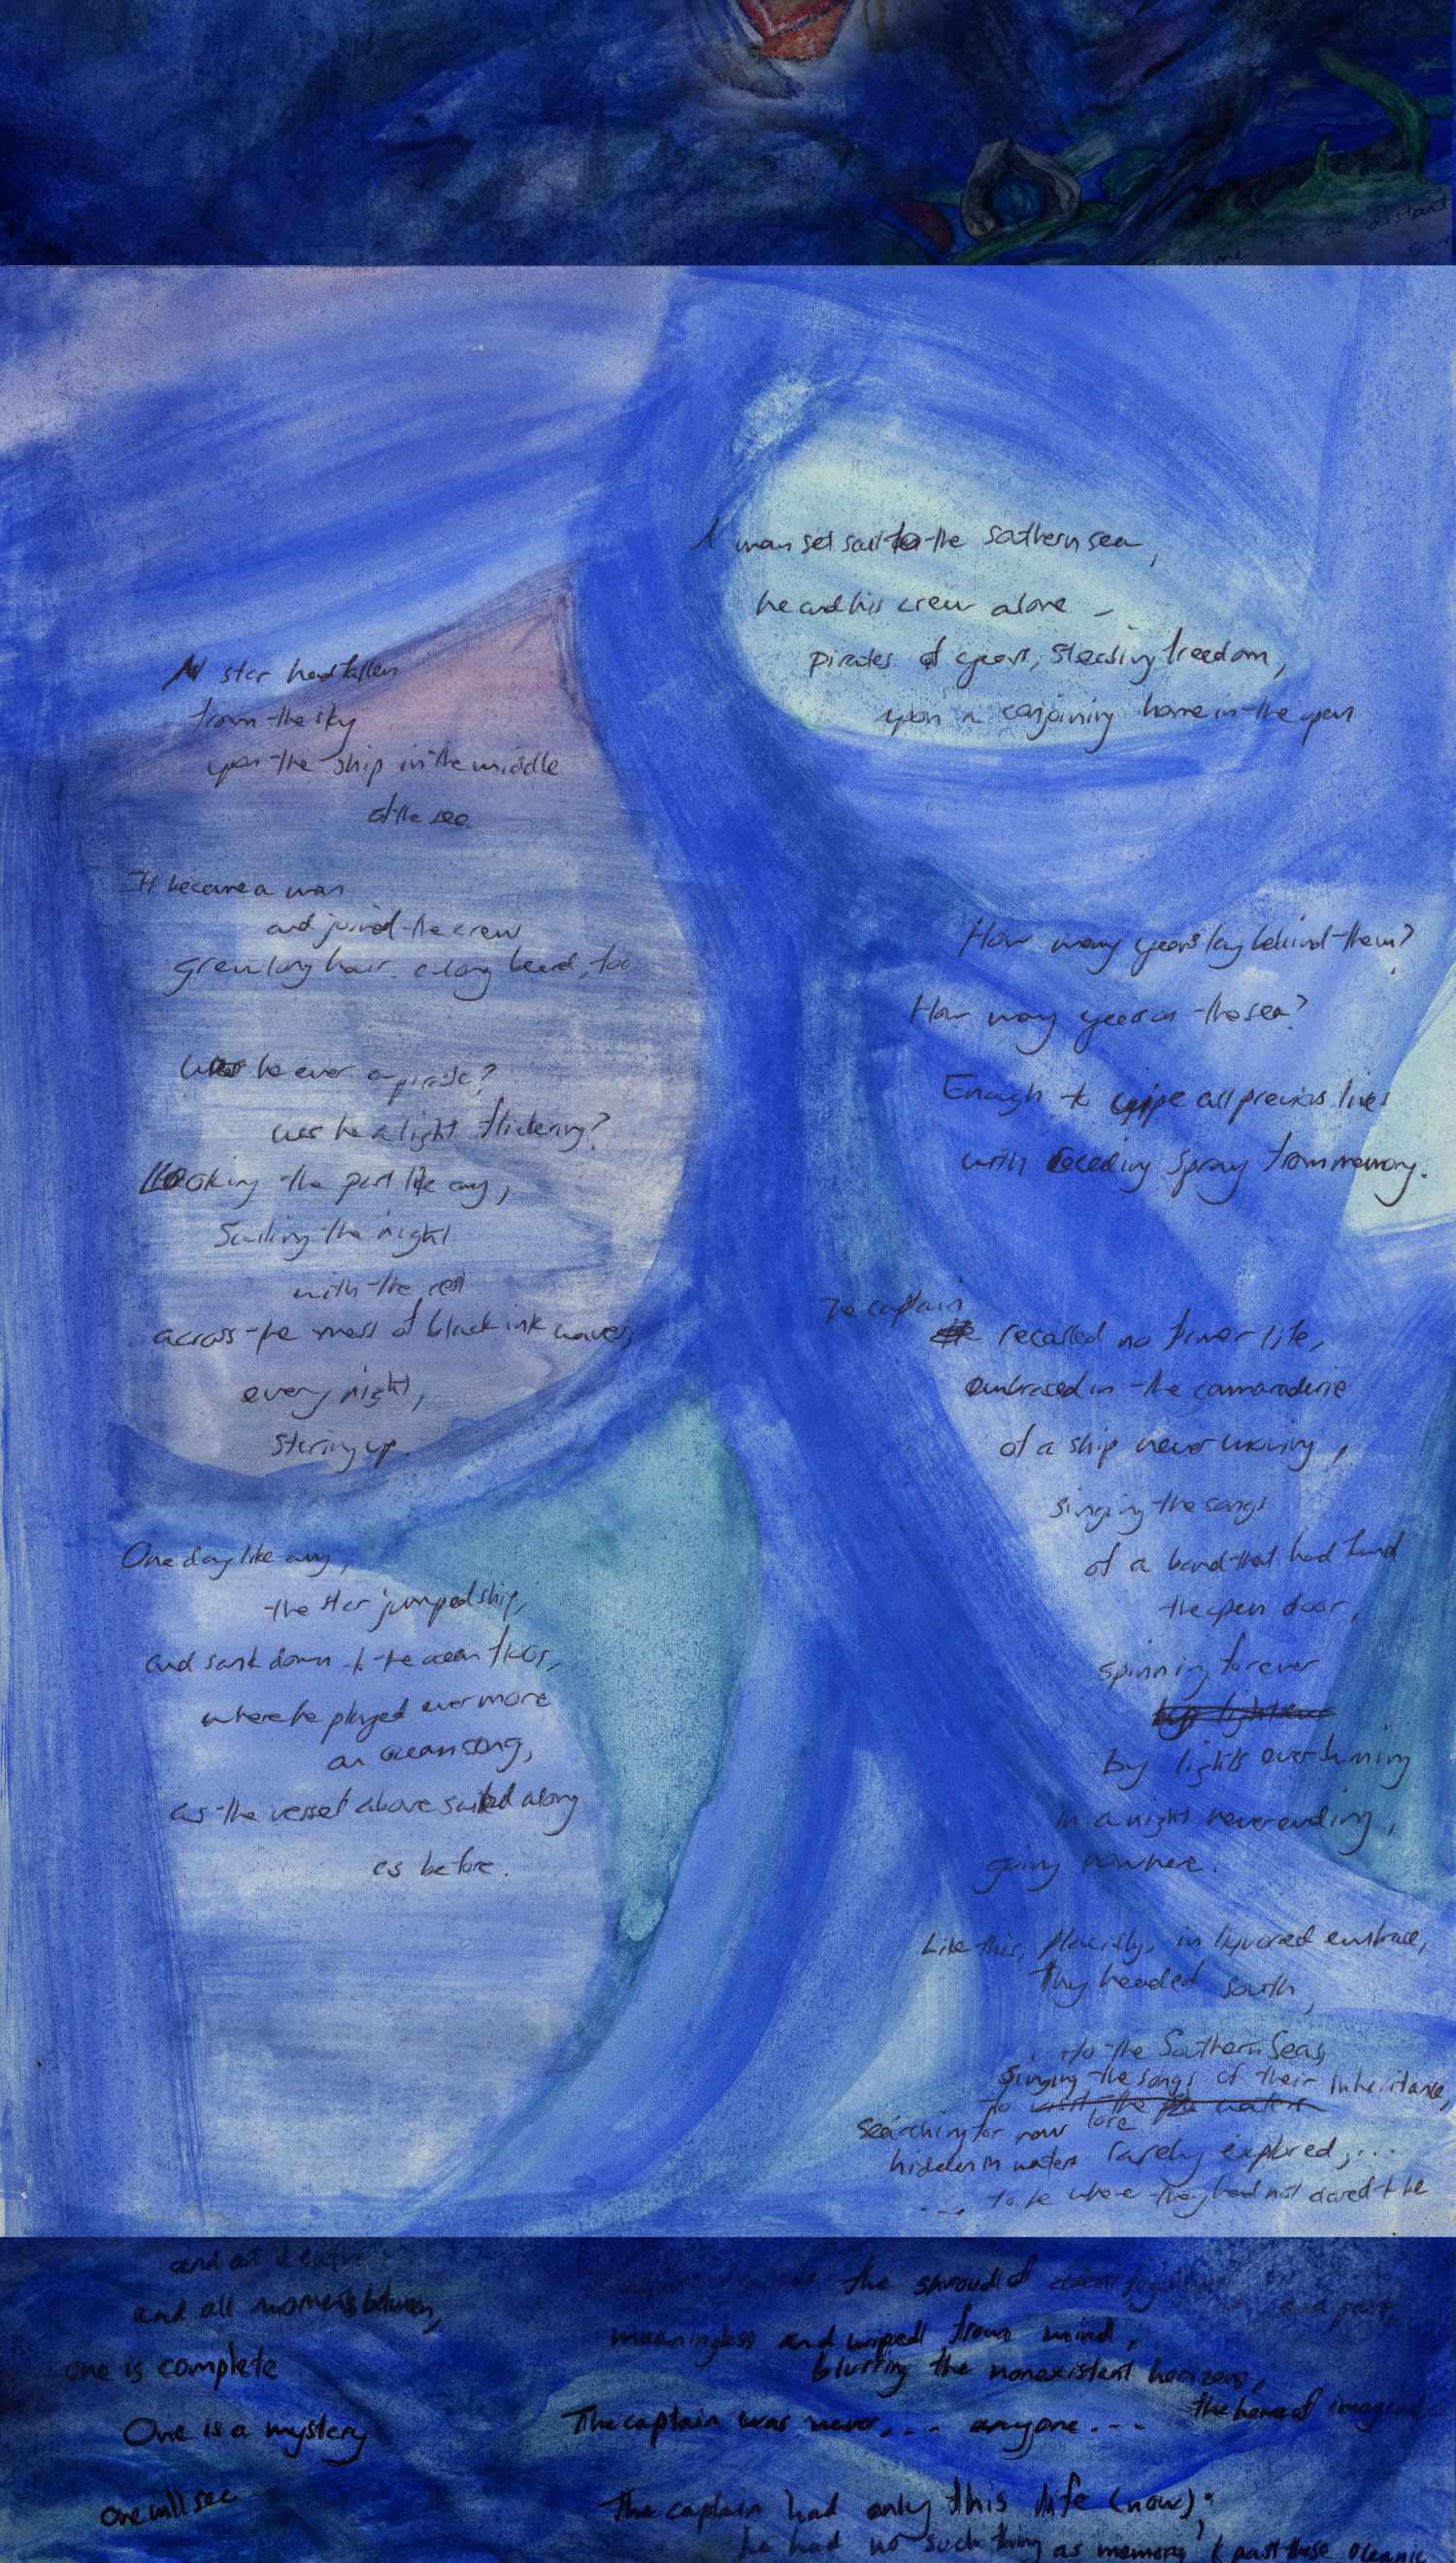 time in a distant
A star had fallen
from the sky
upon the ship in the middle
of the sea.
It became a man
and joined the crew
grew long hair, a long beard, too
Was he ever a pirate?
was he a light flickering?
Looking the part like any,
Sailing the night
with the rest
across the mass of black ink waves,
every night,
staring up.
One day like any,
the star jumped ship,
and sank down to the ocean floor,
where he played evermore
an ocean song,
as the vessel above sailed along
as before.
A man set sail to the southern sea,
he and his crew alone –
pirates of yours, stealing freedom,
upon a conjoining home in the open
How many years lay behind them?
How many years on the sea?
Enough to wipe all previous lives
with receding spray from memory.
The captain
recalled no former life,
embraced in the camaraderie
of a ship never moving,
singing the songs
of a band that had found
the open door,
spinning forever
by lights overturning
in a night neverending,
going nowhere.
Like this, placidly, in liquored embrace,
They headed south,
to the Southern Seas,
singing the songs of their inheritance,
to visit the waters
searching for new lore
hidden in waters rarely explored,...
... to be where they had not dared to be
and at
and all moments between,
one is complete
One is a mystery
One will see
the shroud of
and past,
meaningless and wiped from mind,
blurring the nonexistant horizons,
the home of
The captain was never,... anyone...
The captain had only this life (now);
he had no such thing as memory, (past these oceanic